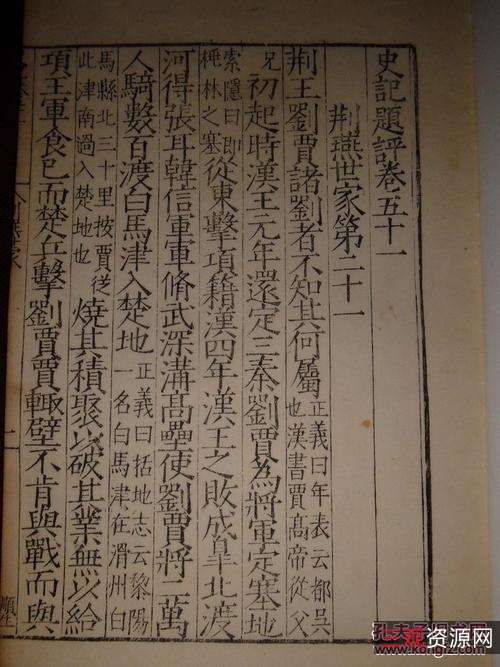 史記題評卷五十一
荆燕世家第二十一
荆王劉賈諸劉者不知其何屬正義曰年表云都吳也漢書賈高帝從父
兄初起時漢王元年還定三秦劉賈為將軍定塞地
索隱曰即桃林之塞從東擊項籍漢四年漢王之敗成皋北渡
河得張耳韓信軍軍脩武深溝高壘使劉賈將二萬
人騎數百渡白馬津入楚地正義曰括地志云黎陽一名白馬津在滑州白
馬縣北三十里按賈從此津南過入楚地也燒其積聚以破其業無以給
項王軍食已而楚兵擊劉賈賈輒壁不肯與戰而與
二
资源网